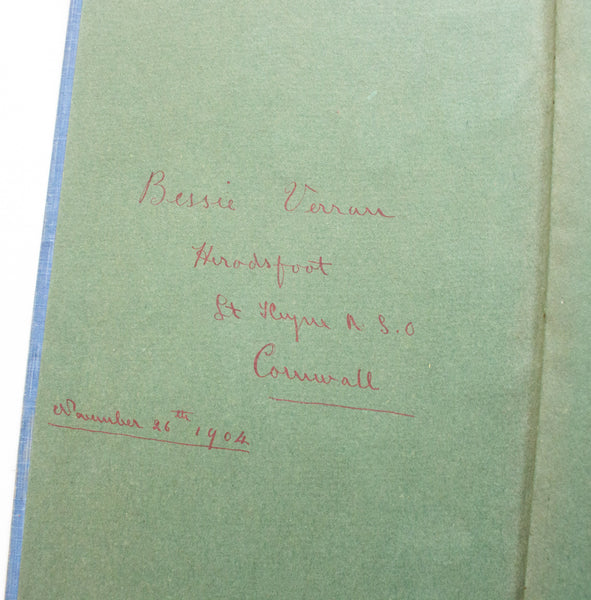 Bessie Verran
Herodsfoot
St Keyne R. S. O
Cornwall
November 26th 1904